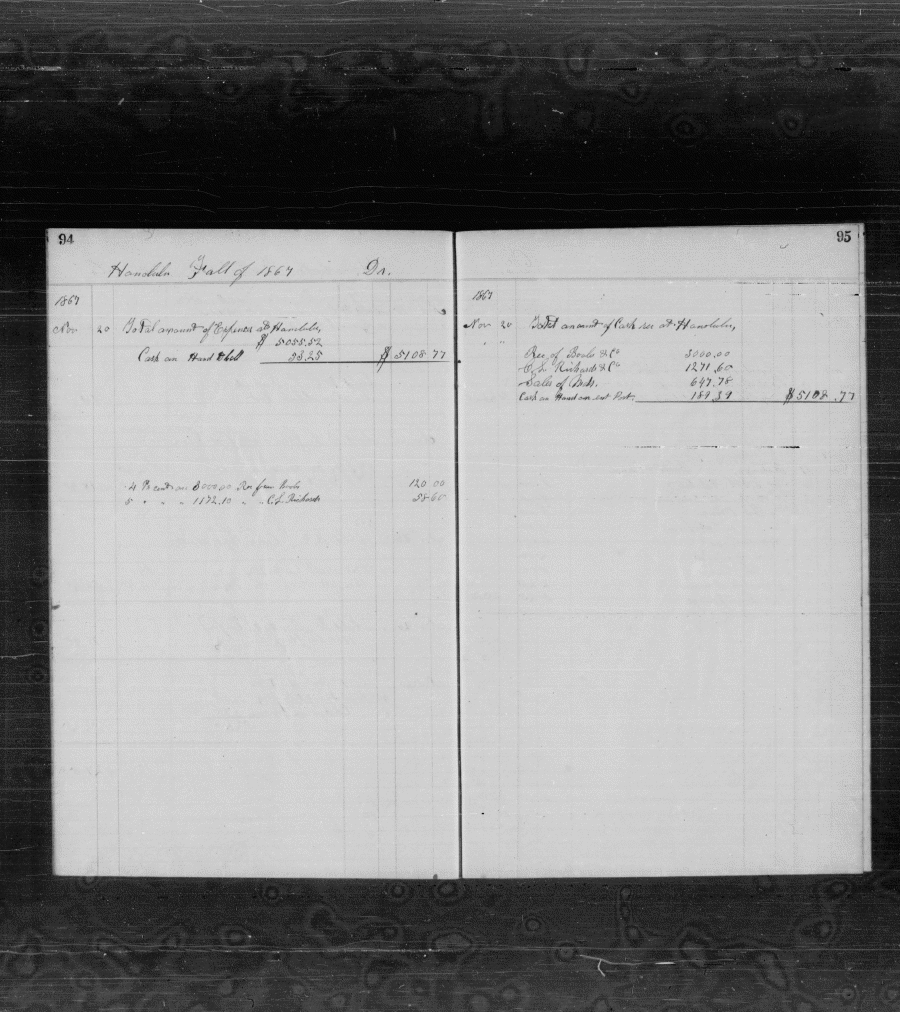 94
Honolulu Fall of 1867 Dr.
1867
Nov 20 Total amount of Expenses at Honolulu,
$ 5055.52
Cash on Hand 53.25 $ 5108.77
4 Pr cent on 3000.00 Rec from
5 " " " 1172.10 " " C. L. Richards 58 60
120 00
95
1867
Nov 20 Total amount of Cash rec at Honolulu,
Rec. of & Co 3000.00
C. L. Richards & Co 1271.60
Sales of 647.78
Cash on Hand on ent Port. 189.39 $5108.77